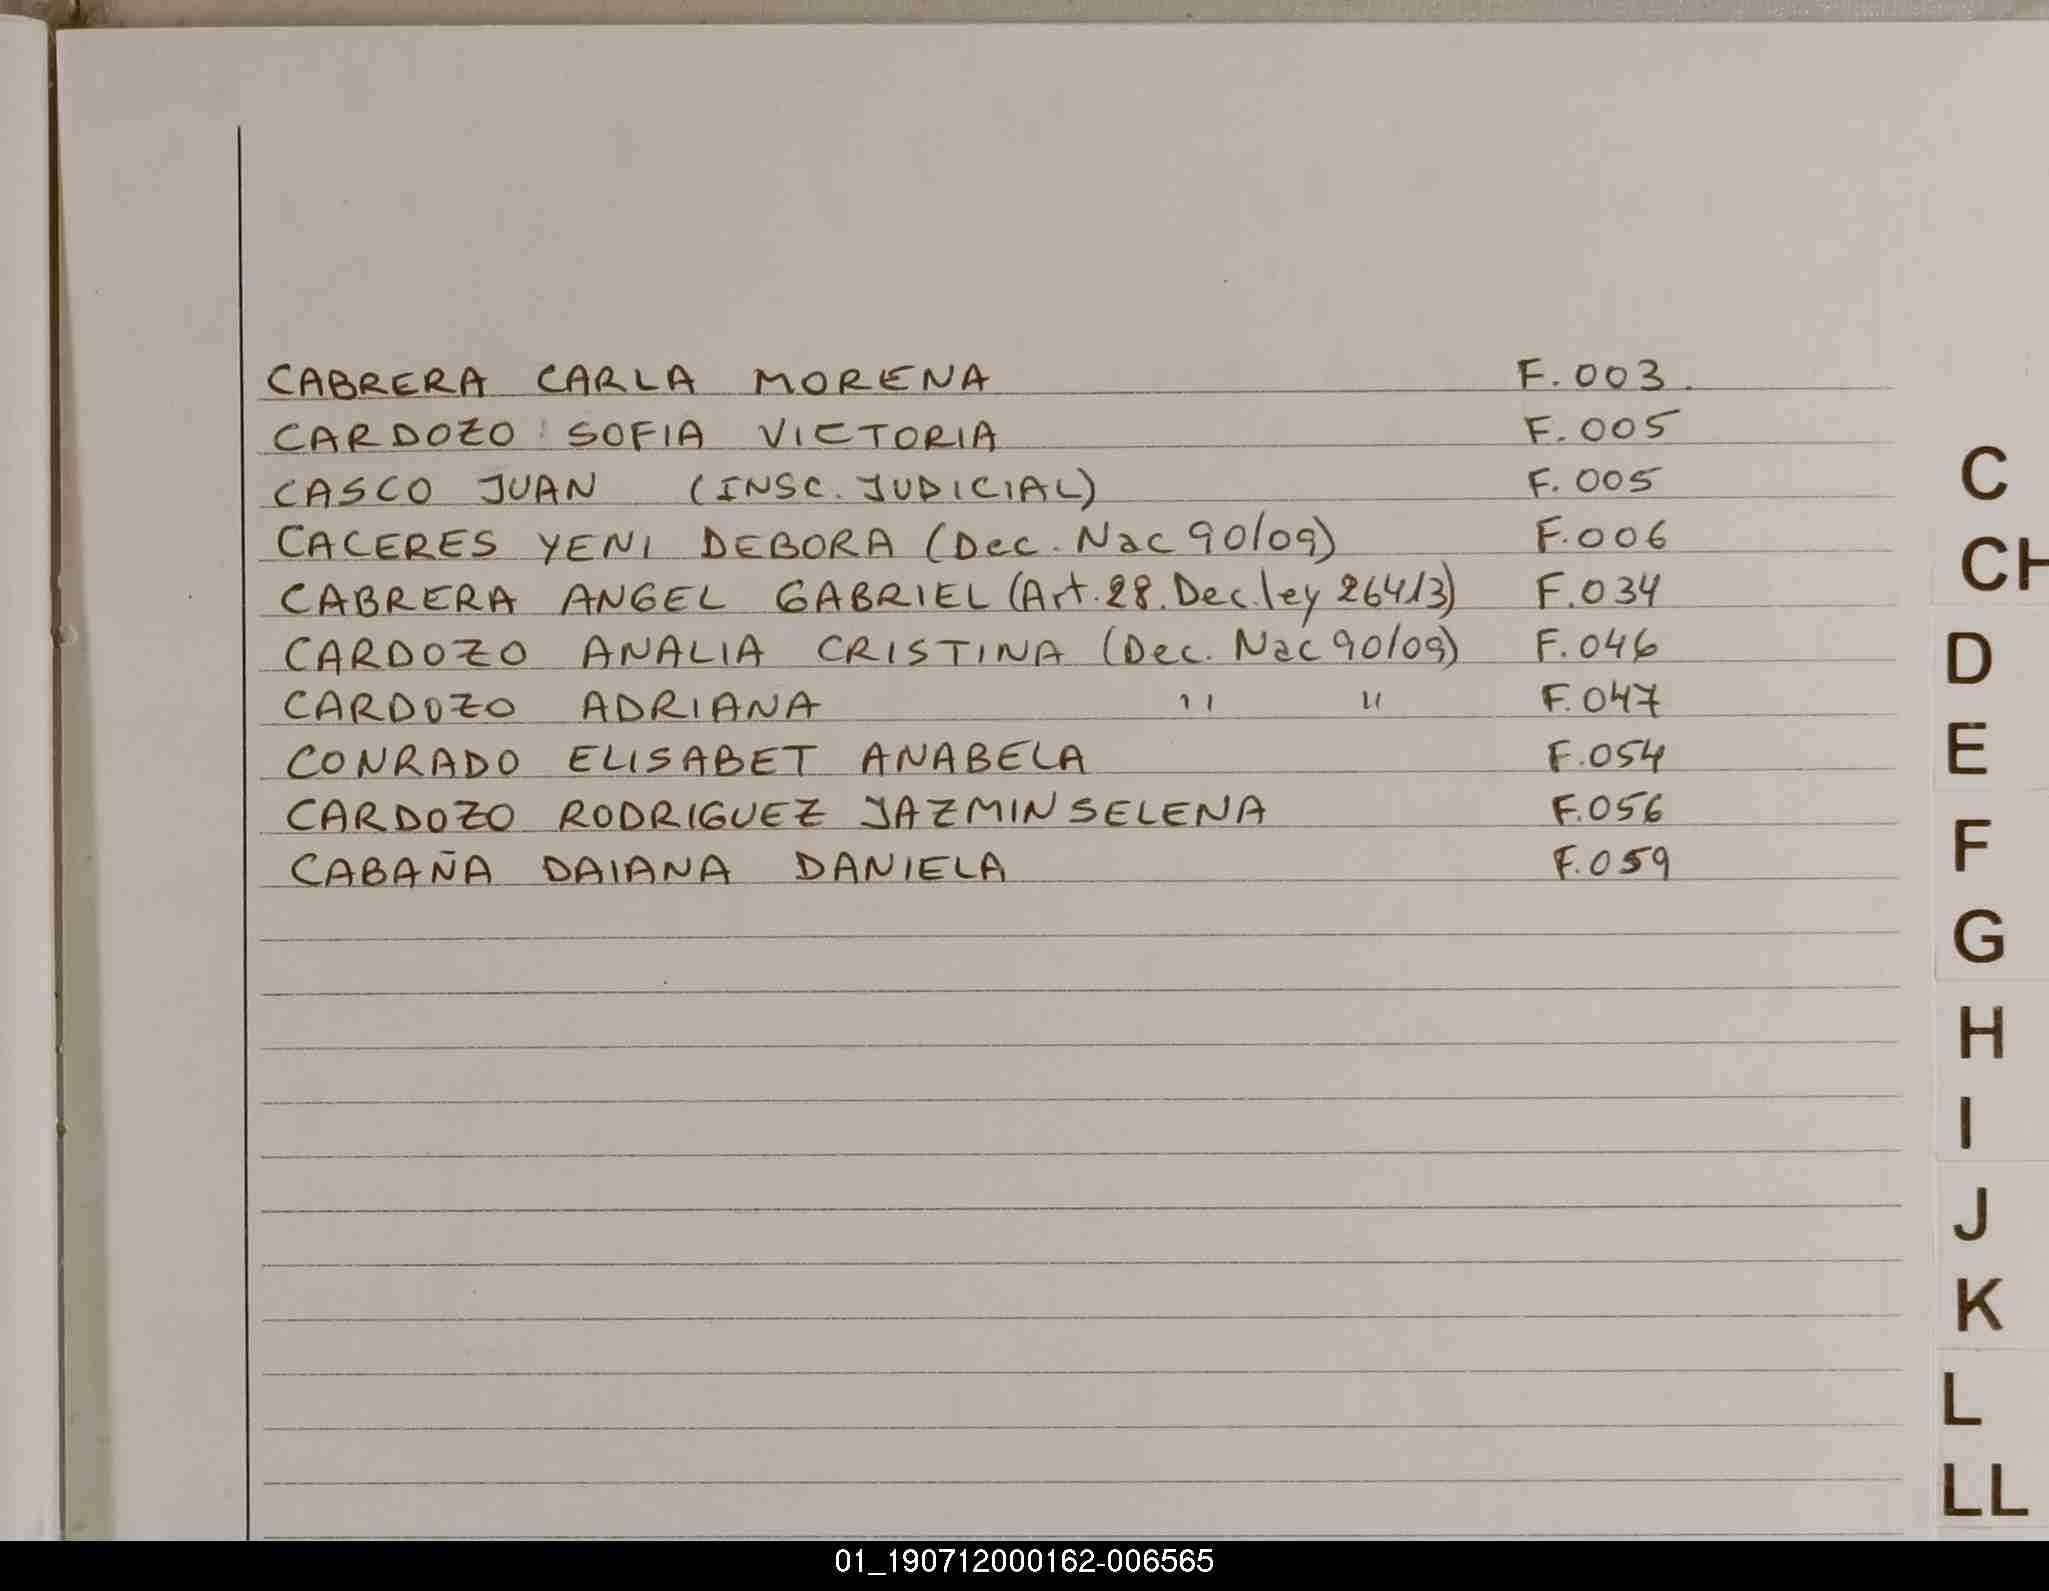 CABRERA CARLA MORENA F.003.
CARDOZO SOFIA VICTORIA F.005
CASCO JUAN (INSC. JUDICIAL) F.005
CACERES YENI DEBORA (Dec. Nac 90/09) F.006
CABRERA ANGEL GABRIEL (Art. 28. Dec. ley 26413) F.034
CARDOZO ANALIA CRISTINA (Dec. Nac 90/09) F.046
CARDOZO ADRIANA " " F.047
CONRADO ELISABET ANABELA F.054
CARDOZO RODRIGUEZ JAZMIN SELENA F.056
CABAÑA DAIANA DANIELA F.059
C
CH
D
E
F
G
H
I
J
K
L
LL
01_190712000162-006565